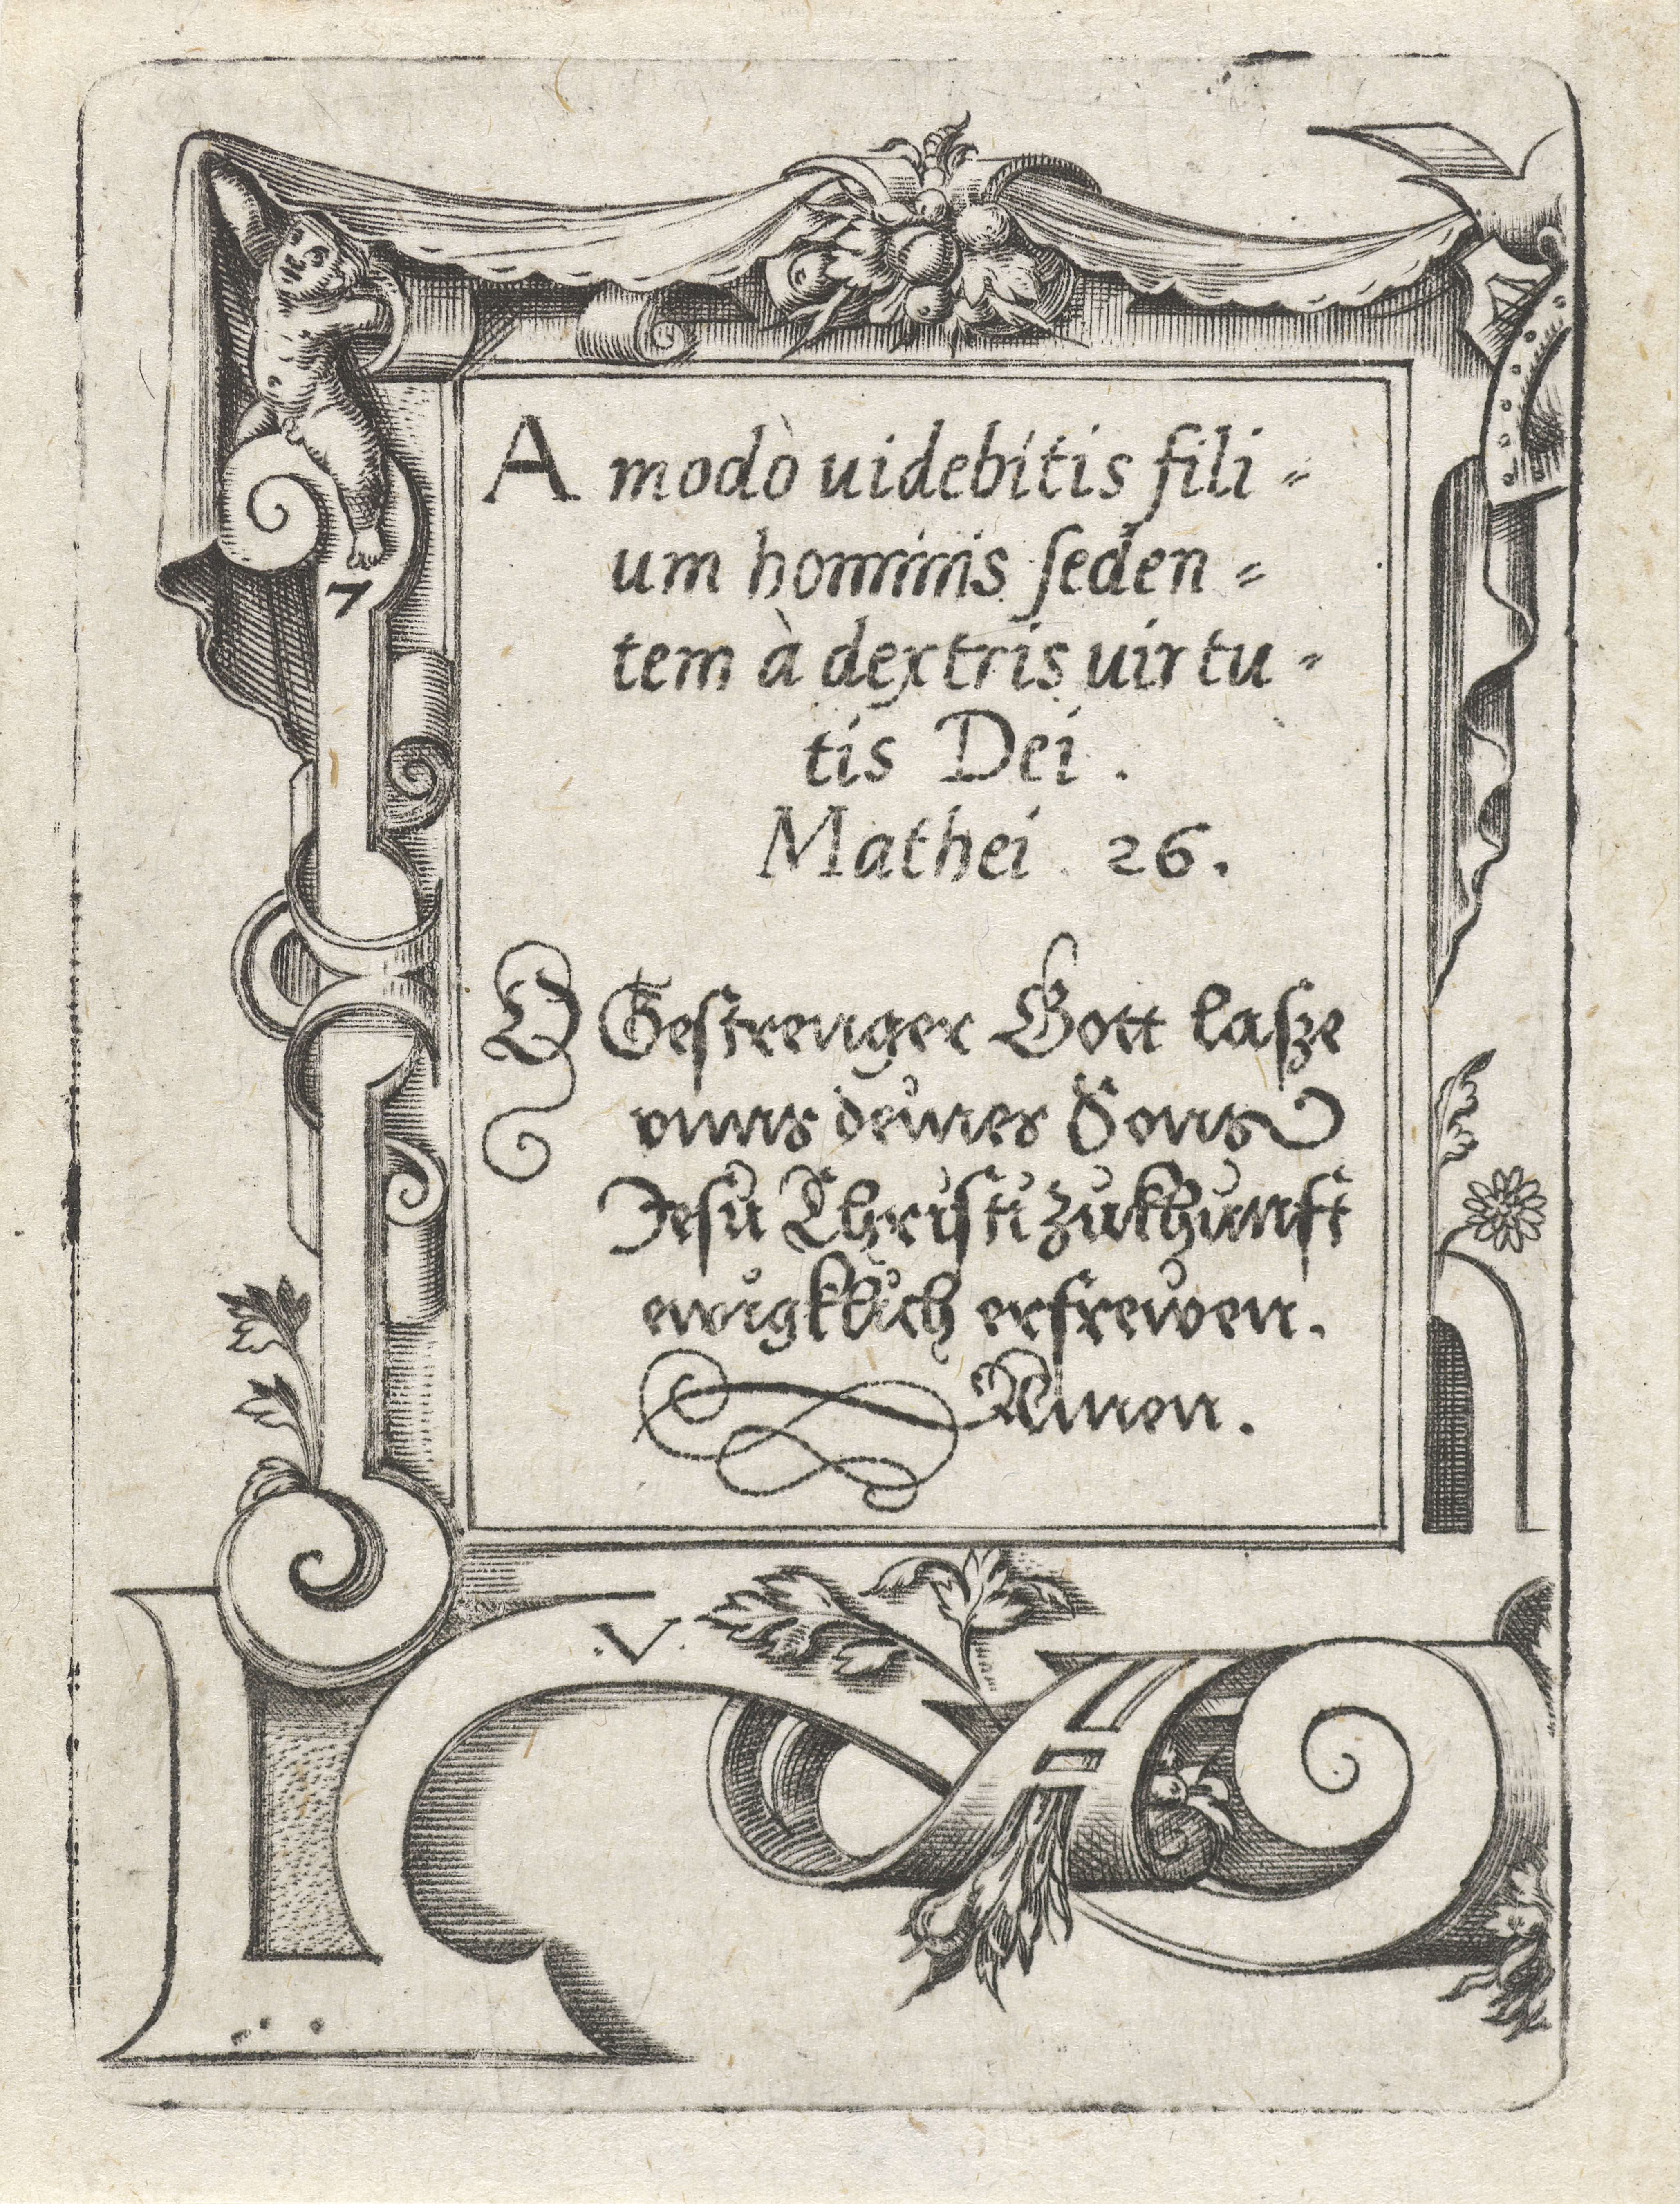 A modò uidebitis fili=
um hominis seden=
tem à dextris uirtu=
tis Dei.
Mathei. 26.
O Gestrenger Gott lasze
vnns deines Sons
Jesu Christi zukhunfft
ewigklich erfrewen.
Amen.
7
.V.